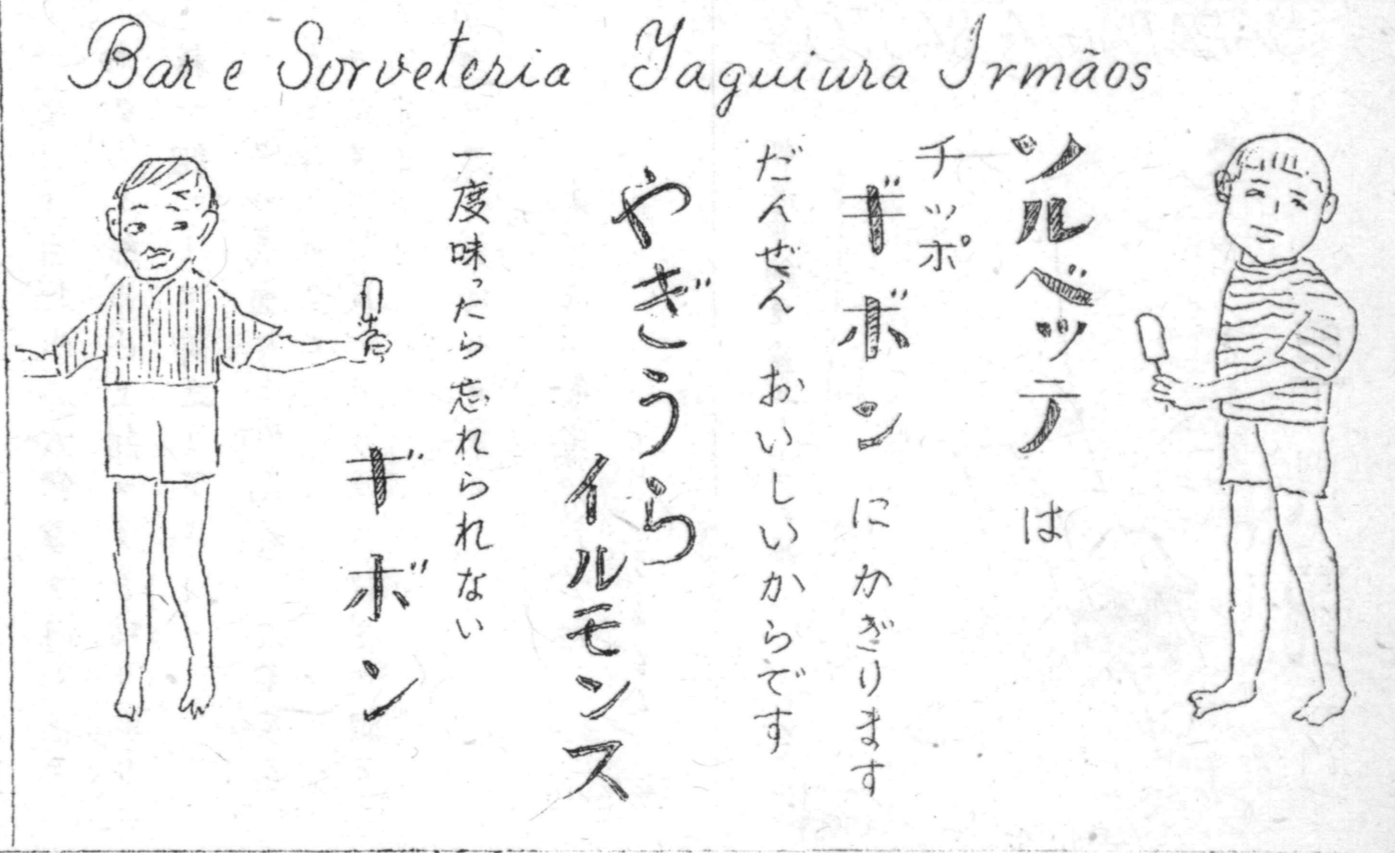 Bar e Sorveteria Yaguiura Irmãos
ソルベッテは
チッポ
ギボンにかぎります
だんぜんおいしいからです
やぎうら
イルモンス
一度味ったら忘れられない
ギボン